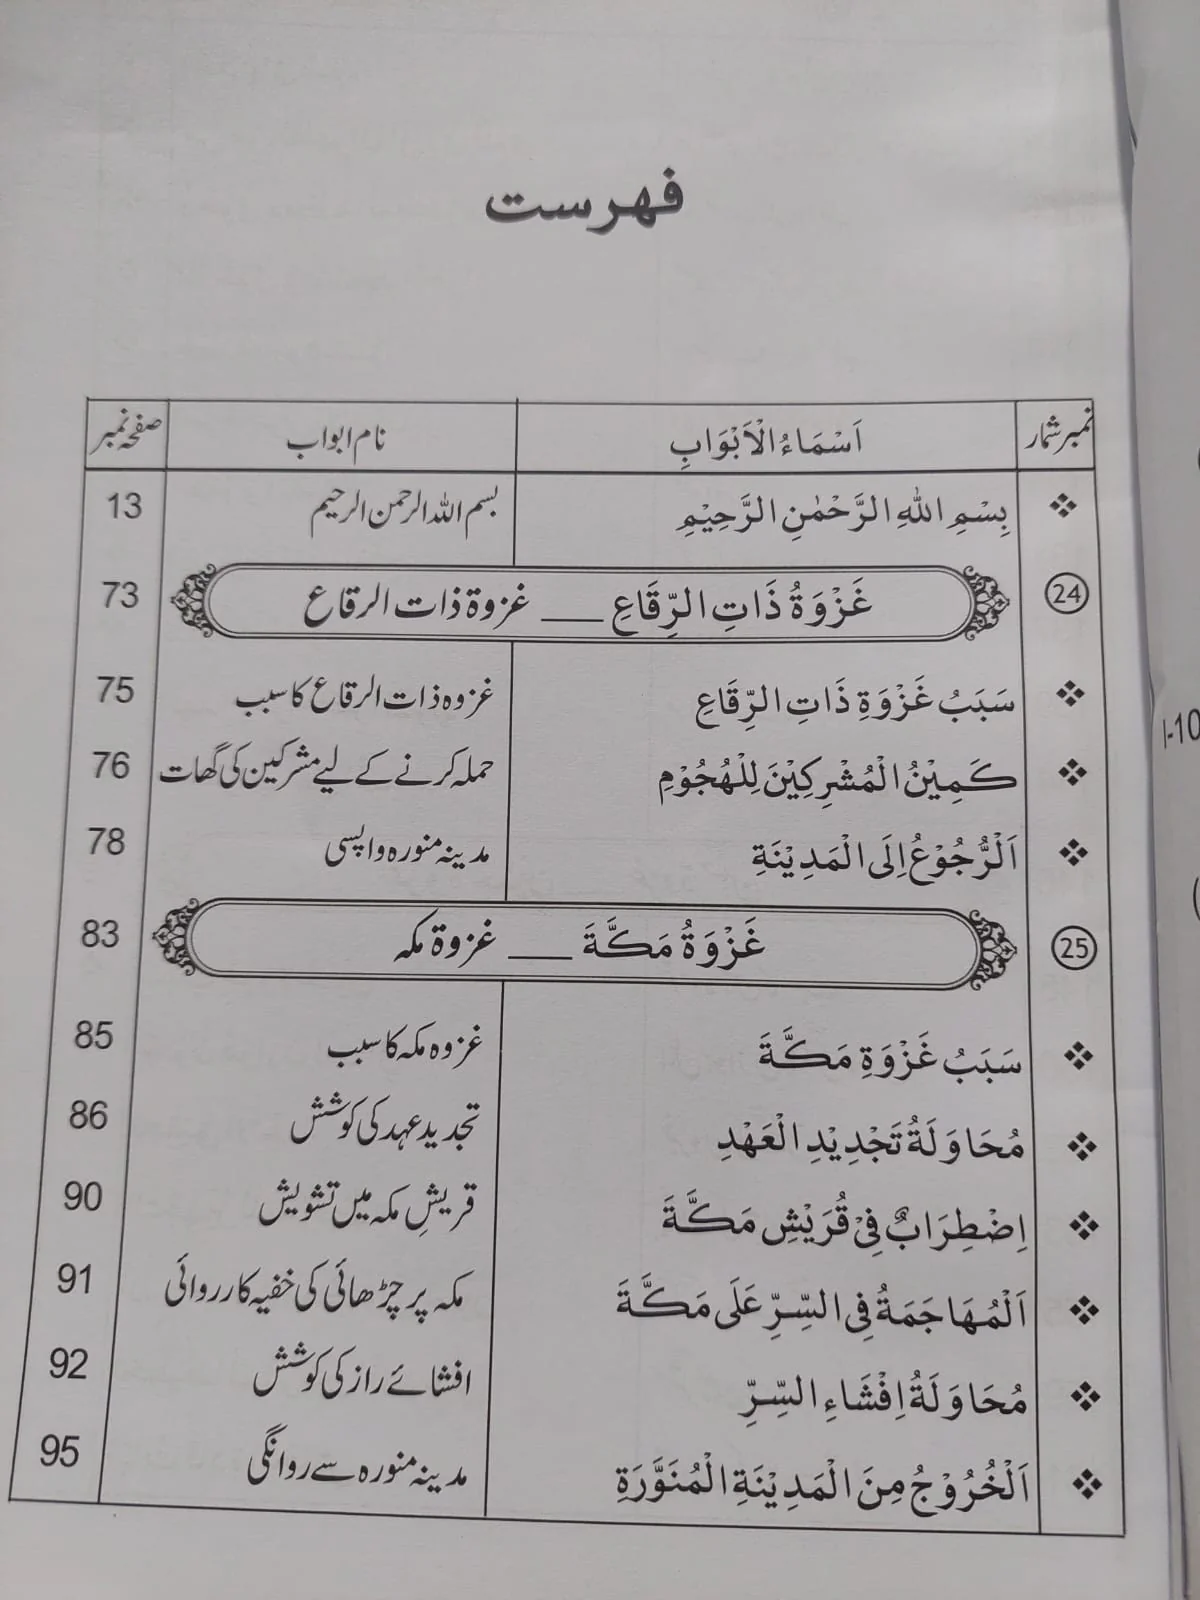 فہرست
نمبر شمار اَسْمَاءُ الْاَبْوَابِ نام ابواب صفحہ نمبر
❖ بِسْمِ اللهِ الرَّحْمٰنِ الرَّحِيْمِ بسم اللہ الرحمن الرحیم 13
24 غَزْوَةُ ذَاتِ الرِّقَاعِ ___ غزوۃ ذات الرقاع 73
❖ سَبَبُ غَزْوَةِ ذَاتِ الرِّقَاعِ غزوہ ذات الرقاع کا سبب 75
❖ كَمِيْنُ الْمُشْرِكِيْنَ لِلْهُجُوْمِ حملہ کرنے کے لیے مشرکین کی گھات 76
❖ اَلْرُّجُوْعُ اِلَى الْمَدِيْنَةِ مدینہ منورہ واپسی 78
25 غَزْوَةُ مَكَّةَ ___ غزوۃ مکہ 83
❖ سَبَبُ غَزْوَةِ مَكَّةَ غزوہ مکہ کا سبب 85
❖ مُحَاوَلَةُ تَجْدِيْدِ الْعَهْدِ تجدید عہد کی کوشش 86
❖ اِضْطِرَابٌ فِيْ قُرَيْشِ مَكَّةَ قریشِ مکہ میں تشویش 90
❖ اَلْمُهَاجَمَةُ فِي السِّرِّ عَلَى مَكَّةَ مکہ پر چڑھائی کی خفیہ کارروائی 91
❖ مُحَاوَلَةُ اِفْشَاءِ السِّرِّ افشائے راز کی کوشش 92
❖ اَلْخُرُوْجُ مِنَ الْمَدِيْنَةِ الْمُنَوَّرَةِ مدینہ منورہ سے روانگی 95